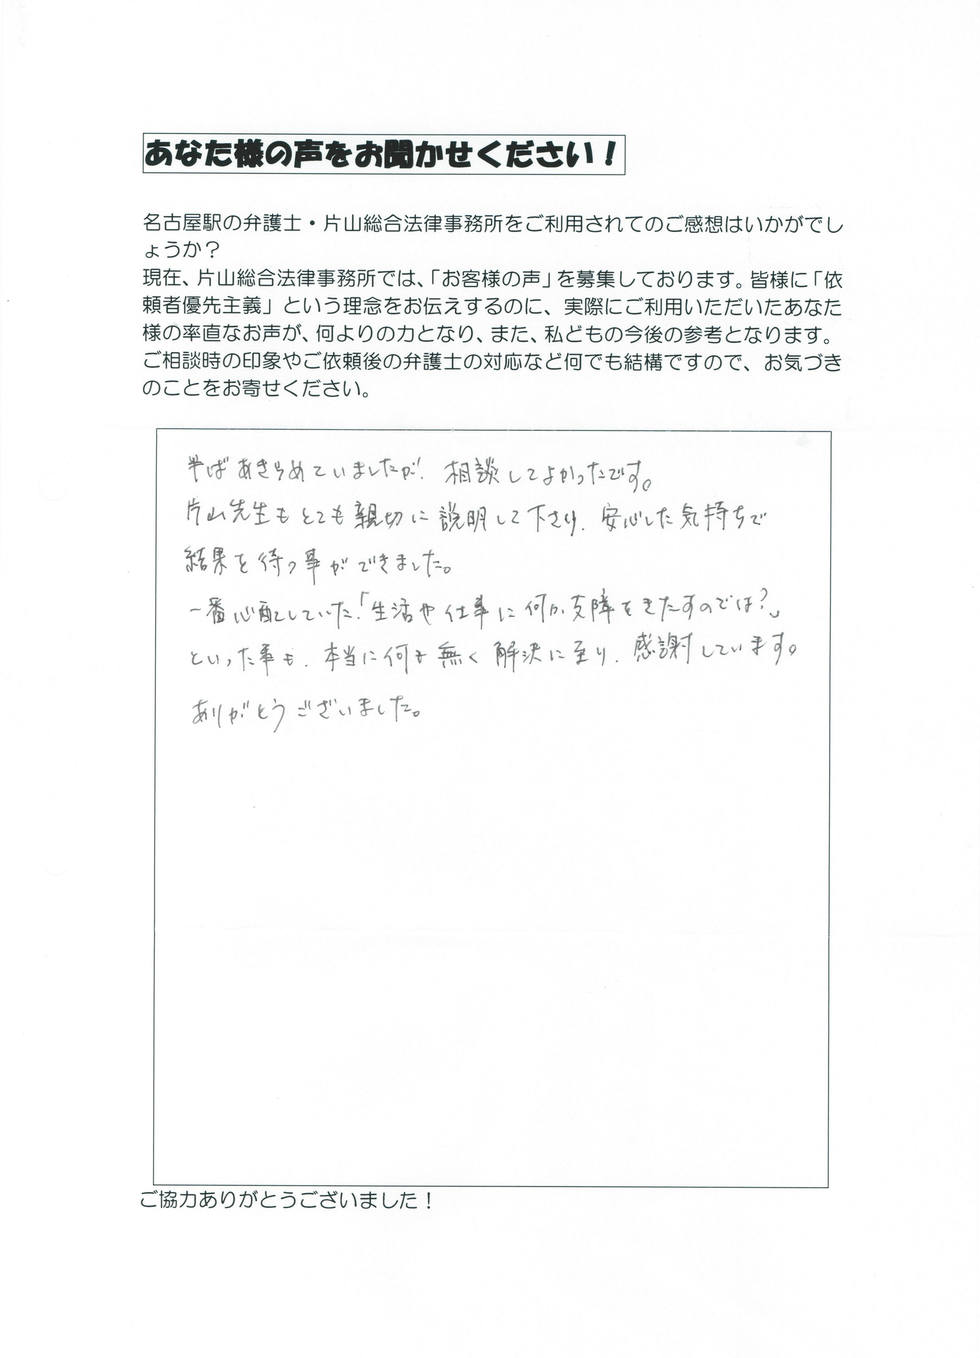 あなた様の声をお聞かせください！
名古屋駅の弁護士・片山総合法律事務所をご利用されてのご感想はいかがでし
ょうか？
現在、片山総合法律事務所では、「お客様の声」を募集しております。皆様に「依
頼者優先主義」という理念をお伝えするのに、実際にご利用いただいたあなた
様の率直なお声が、何よりの力となり、また、私どもの今後の参考となります。
ご相談時の印象やご依頼後の弁護士の対応など何でも結構ですので、お気づき
のことをお寄せください。
半ばあきらめていましたが、相談してよかったです。
片山先生もとても親切に説明して下さり、安心した気持ちで
結果を待つ事ができました。
一番心配していた「生活や仕事に何か支障をきたすのでは？」
といった事も、本当に何も無く解決に至り、感謝しています。
ありがとうございました。
ご協力ありがとうございました！